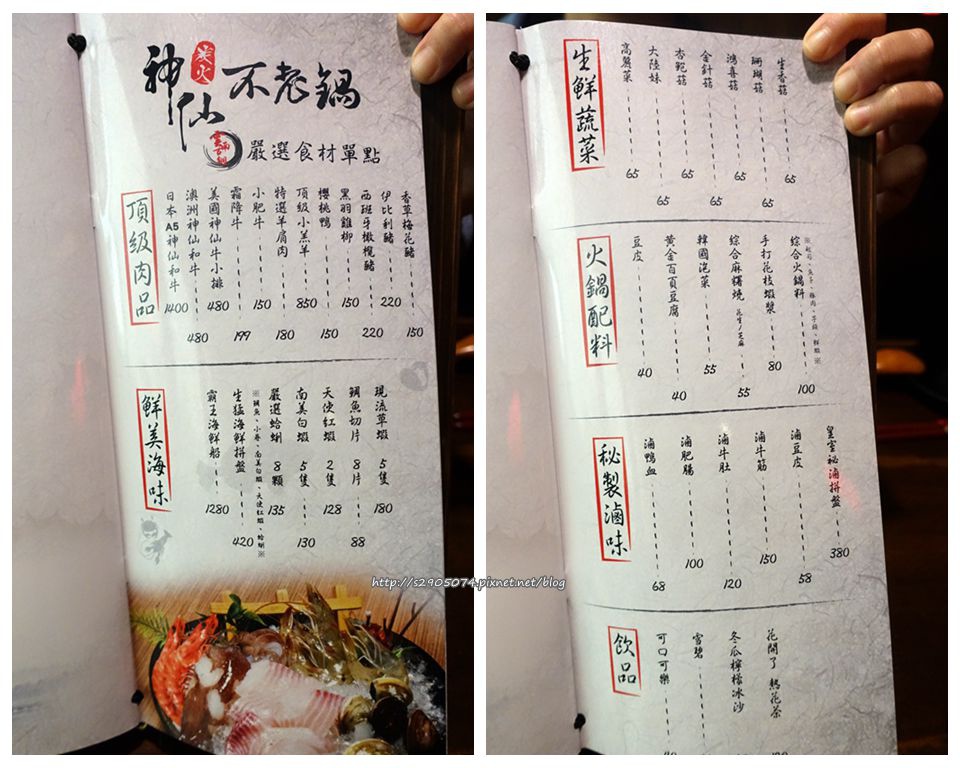 炭火
神仙不老鍋
嚴選食材單點
頂級肉品
香草梅花豬 150
伊比利豬 220
西班牙橄欖豬 220
黑羽雞柳 150
櫻桃鴨 150
頂級小羔羊 850
特選羊肩肉 180
小肥牛 150
霜降牛 199
美國神仙牛小排 480
澳洲神仙和牛 480
日本A5神仙和牛 1400
鮮美海味
現流草蝦 5隻 180
鯛魚切片 8片 88
天使紅蝦 2隻 128
南美白蝦 5隻 130
嚴選蛤蜊 8顆 135
生猛海鮮拼盤 420
※鯛魚、小卷、南美白蝦、天使紅蝦、蛤蜊※
霸王海鮮船 1280
生鮮蔬菜
生香菇 65
珊瑚菇 65
鴻喜菇 65
金針菇 65
杏鮑菇 65
大陸妹 65
高麗菜 65
火鍋配料
綜合火鍋料 100
手打花枝蝦漿 80
綜合麻糬燒 花生/芝麻 55
韓國泡菜 55
黃金百頁豆腐 40
豆皮 40
秘製滷味
皇室秘滷拼盤 380
滷豆皮 58
滷牛筋 150
滷牛肚 120
滷肥腸 100
滷鴨血 68
飲品
花開了 熱花茶
冬瓜檸檬冰沙
雪碧
可口可樂
http://s2905074.pixnet.net/blog